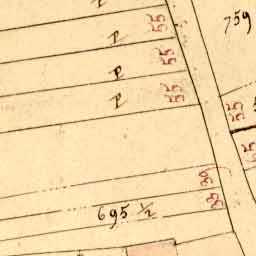 759
p
55
p
55
p
55
55
65
30
30
695 1/2